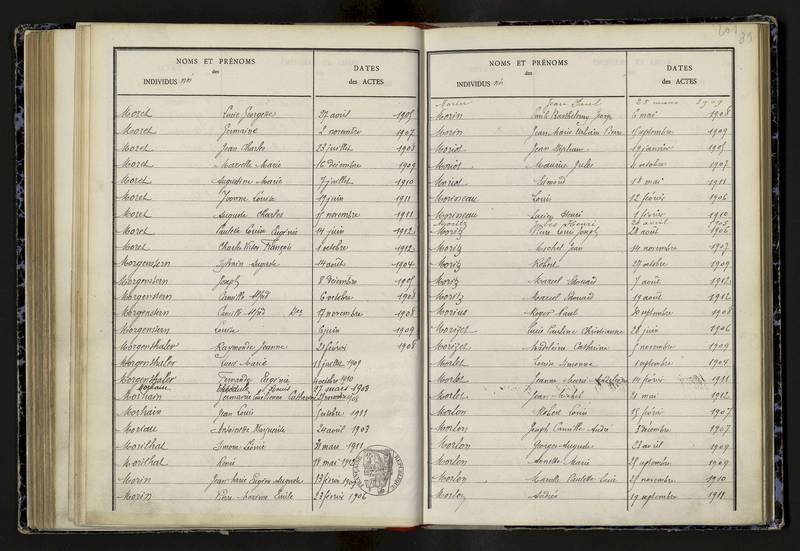 NOMS ET PRÉNOMS
des
INDIVIDUS nés
DATES
des ACTES
Moret Lucie Georgette 27 avril 1905
Moret Germaine 2 novembre 1907
Moret Jean Charles 23 juillet 1908
Moret Marcelle Marie 16 décembre 1909
Moret Augustine Marie 7 juillet 1910
Moret Yvonne Louise 19 juin 1911
Moret Auguste Charles 15 novembre 1911
Moret Paulette Louise Eugénie 14 juin 1912
Moret Charles Victor François 1 octobre 1912
Morgenstern Sylvain Auguste 14 août 1904
Morgenstern Joseph 8 décembre 1905
Morgenstern Camille 6 octobre 1908
Morgenstern Camille 17 novembre 1908
Morgenstern Louise 6 juin 1909
Morgenthaler Raymonde Jeanne 21 février 1908
Morgenthaler Lucie Marie 15 juillet 1909
Morgenthaler Fernande Eugénie octobre 1910
Morhain Louis 27 mars 1903
Morhain Germaine novembre 1908
Morhain Jean Louis octobre 1911
Moriau Antoinette Marguerite 24 avril 1903
Morilhat Simone 31 mars 1911
Morilhat René 18 mai 1912
Morin Jean Marie Eugène Auguste 13 février
Morin Pierre Maxime Emile 23 février 1906
39
NOMS ET PRÉNOMS
des
INDIVIDUS nés
DATES
des ACTES
Morin Jean Paul 25 mars 1909
Morin Emile Barthélemy 6 mai 1908
Morin Jean Marie Urbain Pierre septembre 1909
Moriot Jean Stéphane 19 janvier 1905
Moriot Maurice Jules 4 octobre 1907
Moriot Edmond 18 mai 1911
Morisseau Louis 12 février 1906
Morisseau Lucien Henri 1 février 1910
Moritz Jules Henri 20 avril 1905
Moritz Pierre Louis Joseph 28 août 1906
Moritz Michel Jean 14 novembre 1907
Moritz Robert 27 octobre 1909
Moritz Marcel Edouard 7 août 1912
Moritz Marcel Edouard 19 août 1912
Morius Roger Paul 20 septembre 1908
Morizet Lucie Pauline Christianne 28 juin 1906
Morizet Madeleine Catherine novembre 1909
Morlet Louise Simonne septembre 1904
Morlet Jeanne Marie Madeleine 14 février 1911
Morlet Jean Michel 21 mai 1912
Morlon Robert Louis 15 février 1907
Morlon Joseph Camille André 3 décembre 1907
Morlon Georges Auguste 23 avril 1909
Morlon Annette Marie 28 septembre 1909
Morlon Marcelle Paulette novembre 1910
Morlon Andrée 19 septembre 1911